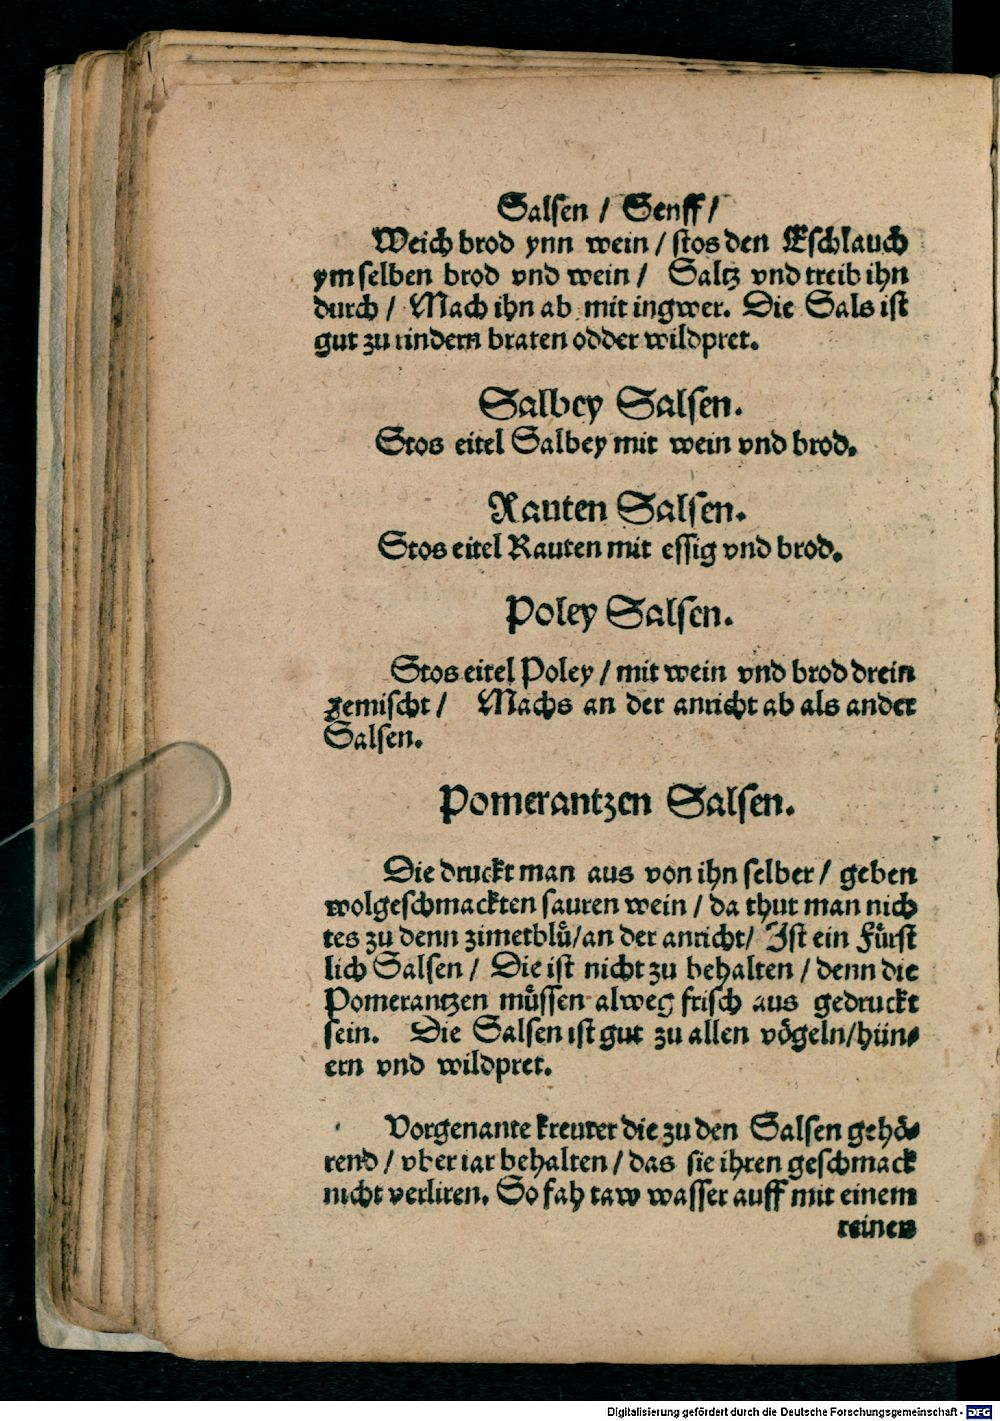 Salsen / Senff /
Weich brod ynn wein / stos den Eschlauch
ym selben brod vnd wein / Saltz vnd treib ihn
durch / Mach ihn ab mit ingwer. Die Sals ist
gut zu rindern braten odder wildpret.
Salbey Salsen.
Stos eitel Salbey mit wein vnd brod.
Rauten Salsen.
Stos eitel Rauten mit essig vnd brod.
Poley Salsen.
Stos eitel Poley / mit wein vnd brod drein
gemischt / Machs an der anricht ab als ander
Salsen.
Pomerantzen Salsen.
Die druckt man aus von ihn selber / geben
wolgeschmackten sauren wein / da thut man nich
tes zu denn zimetblů/an der anricht/ Ist ein Fůrst
lich Salsen / Die ist nicht zu behalten / denn die
Pomerantzen můssen alweg frisch aus gedruckt
sein. Die Salsen ist gut zu allen vögeln/hün⸗
ern vnd wildpret.
Vorgenante kreuter die zu den Salsen gehö⸗
rend / vber iar behalten / das sie ihren geschmack
nicht verliren. So fah taw wasser auff mit einem
reinen
Digitalisierung gefördert durch die Deutsche Forschungsgemeinschaft - DFG